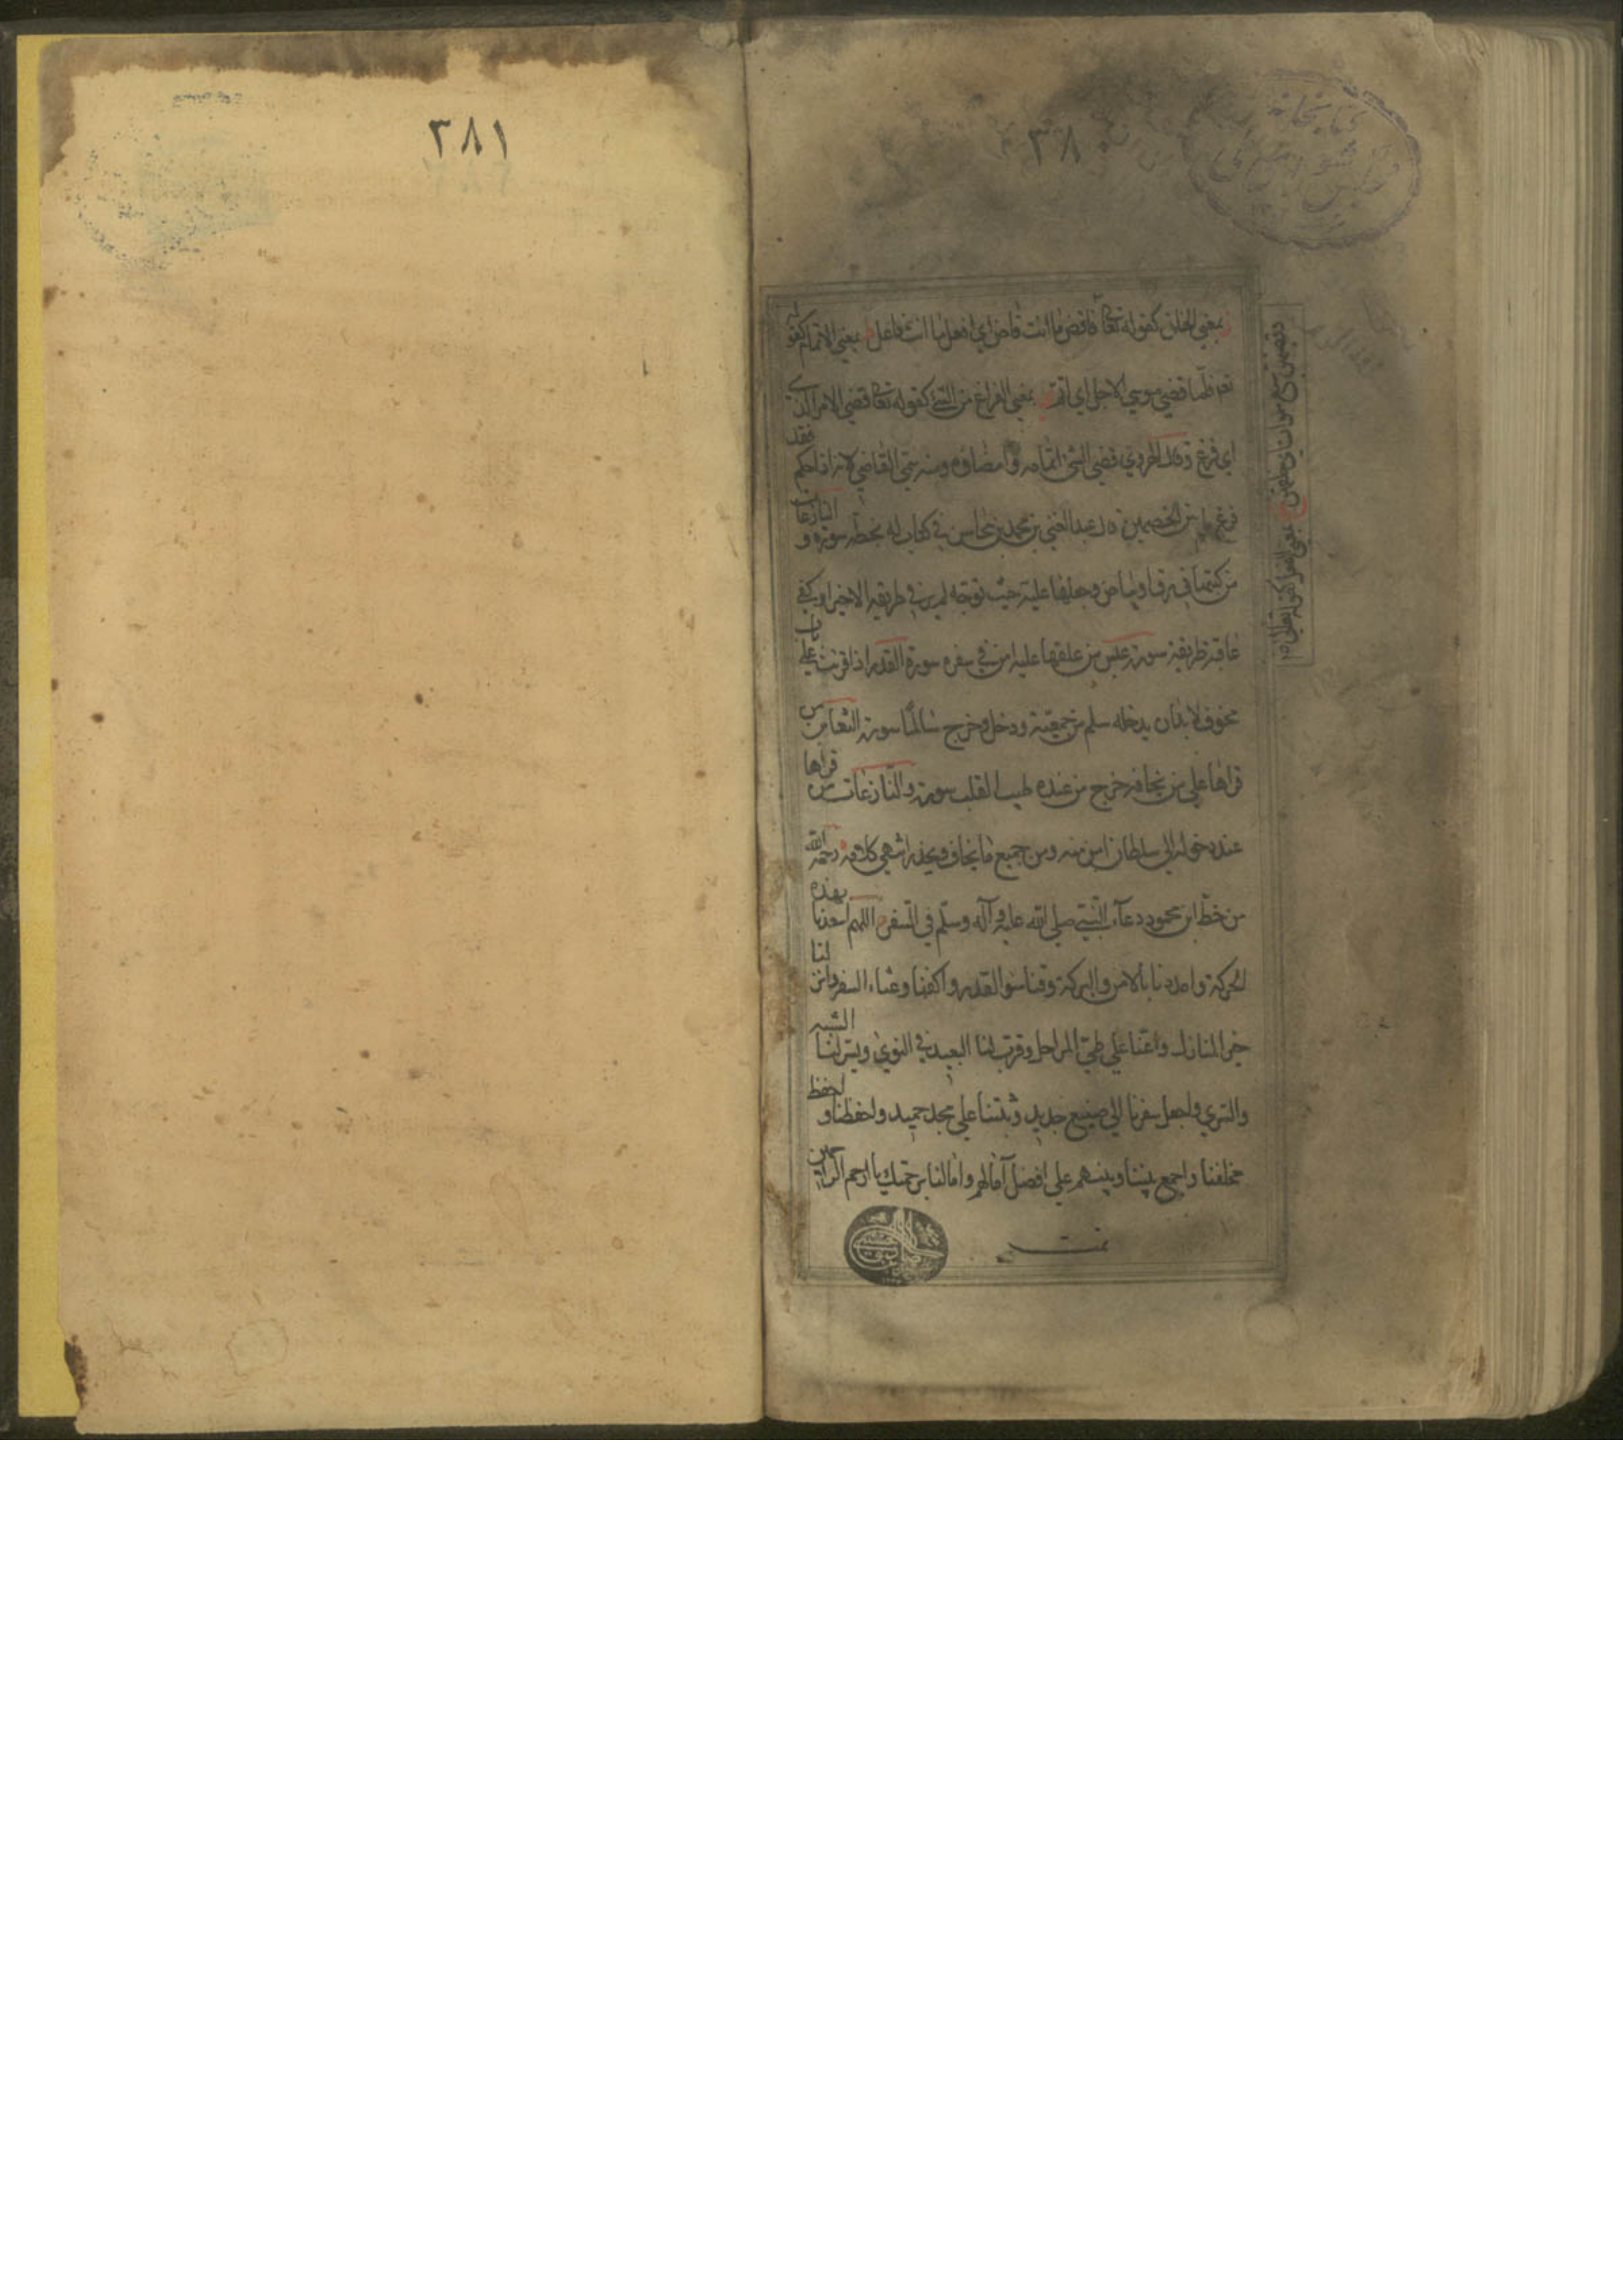 ٣٨٠
كتابخانه
مجلس شوراى ملى
بمعنى الخلق كقوله تعا فاقض ما انت قاض اي افعل ما انت فاعل بمعنى الاتمام كقوله
تع فلما قضي موسي الاجل اي اتم بمعنى الفراغ من الشئ كقوله تعا قضي الامر الذي
اي فرغ وقال الهروي قضي الشئ اتمامه وامضاؤه ومنه سمي القاضي لانه اذا حكم فقد
فرغ من الخصمين قال عبد الغني بن محمد بن في كتاب له بخطه سورة والنازعات
من كتبها في رق او بياض وجعلها عليه حيث توجه لم ير في طريقه الا خيرا وكفي
عاقبة طريقه سورة عبس من علقها عليه امن في سفره سورة القدر اذا قرئت علي باب
مخوف لا بد ان يدخله سلم من جميعه ودخل وخرج سالما سورة التغابن من
قراها علي من يخافه خرج من عنده طيب القلب سورة والنازعات من قراها
عند دخوله الي سلطان امن منه ومن جميع ما يخاف ويحذر انتهى كلامه رحمه الله
من خط ابن محمود دعآء النبي صلي الله عليه وآله وسلم في السفر اللهم اسعدنا بهذه
الحركة وامددنا بالامن والبركة وقنا سوا القدر واكفنا وعثاء السفر وانزلنا
خير المنازل واعنا علي طي المراحل وقرب لنا البعيد في النوي ويسر لنا السير
والسري واجعل سفرنا الي صنيع جديد وثبتنا علي مجد حميد واحفظنا واحفظ
مخلفنا واجمع بيننا وبينهم علي افضل آمالهم وامالنا برحمتك يا ارحم الراحمين
تمت
٣٨١